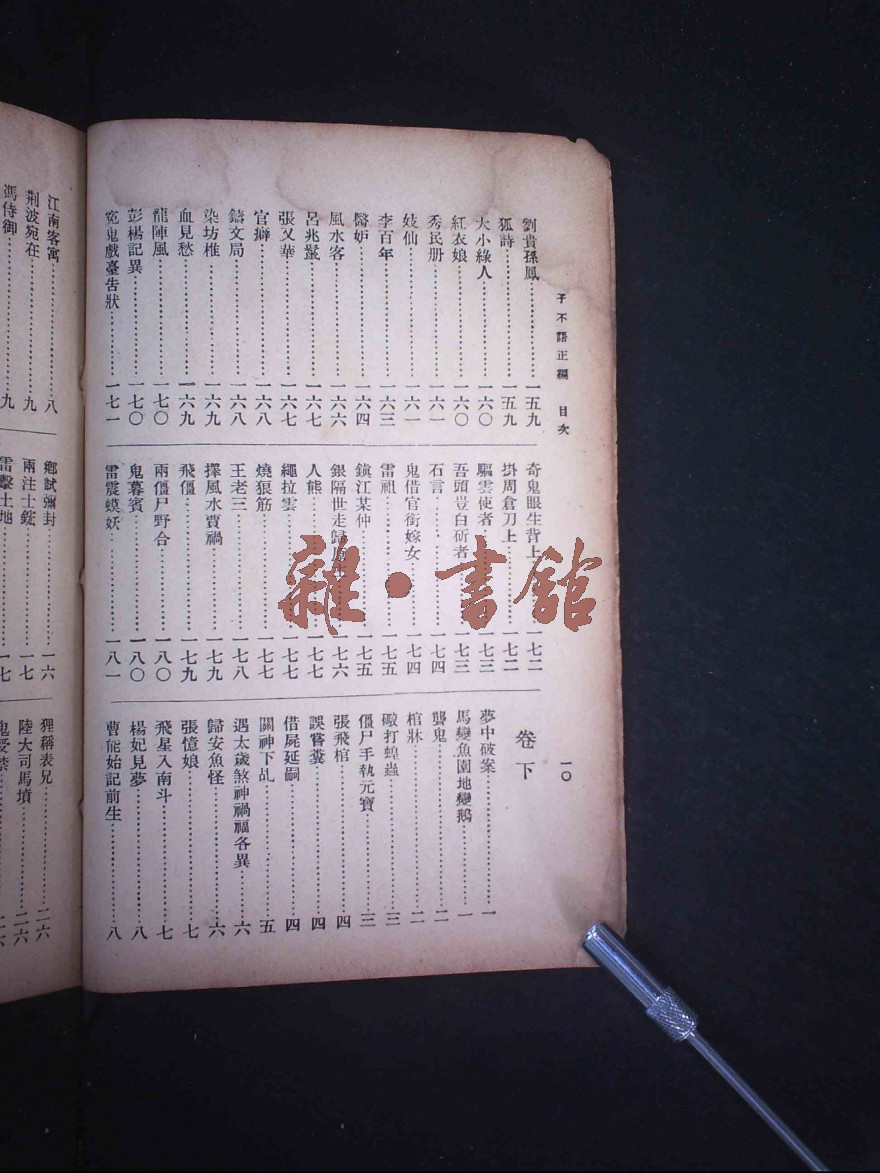 子不語正編 目次
一〇
劉貴孫鳳……一五九
狐詩……一五九
大小綠人……一六〇
紅衣娘……一六〇
秀民册……一六一
妓仙……一六一
李百年……一六三
醫妒……一六四
風水客……一六六
呂兆鬣……一六七
張又華……一六七
官癖……一六八
鑄文局……一六八
染坊椎……一六九
血見愁……一六九
龍陣風……一七〇
彭楊記異……一七〇
冤鬼戲臺告狀……一七一
奇鬼眼生背上……一七二
掛周倉刀上……一七二
驅雲使者……一七三
吾頭豈白斫者……一七三
石言……一七四
鬼借官銜嫁女……一七四
雷祖……一七五
鎮江某仲……一七五
銀隔世走歸……一七六
人熊……一七七
繩拉雲……一七七
燒狼筋……一七七
王老三……一七八
擇風水賈禍……一七九
飛僵……一七九
兩僵尸野合……一八〇
鬼幕賓……一八〇
雷震蟆妖……一八一
卷下
夢中破案……一
馬變魚園地變鵝……一
龔鬼……二
棺牀……二
礮打蝗蟲……三
僵尸手執元寶……三
張飛棺……四
誤嘗糞……四
借屍延嗣……四
關神下乩……五
遇太歲煞神禍福各異……六
歸安魚怪……六
張憶娘……七
飛星入南斗……七
楊妃見夢……八
曹能始記前生……八
江南客寓……八
荆波宛在……九
馮侍御……九
鄉試彌封……一六
兩注士鋐……一七
雷擊土地……一七
狸稱表兄……二六
陸大司馬墳……二六
雜·書館